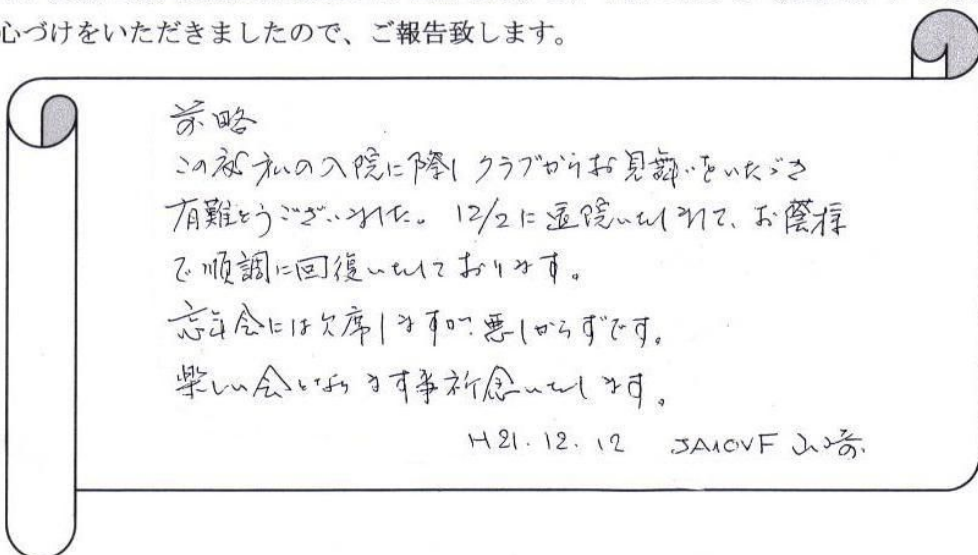 心づけをいただきましたので、ご報告致します。
前略
この初私の入院に際しクラブからお見舞いをいただき
有難とうございました。12/2に退院いたしまして、お蔭様
で順調に回復いたしております。
忘年会には欠席しますが、悪しからずです。
楽しい会となります事祈念いたします。
H21.12.12 JA1OVF 山崎